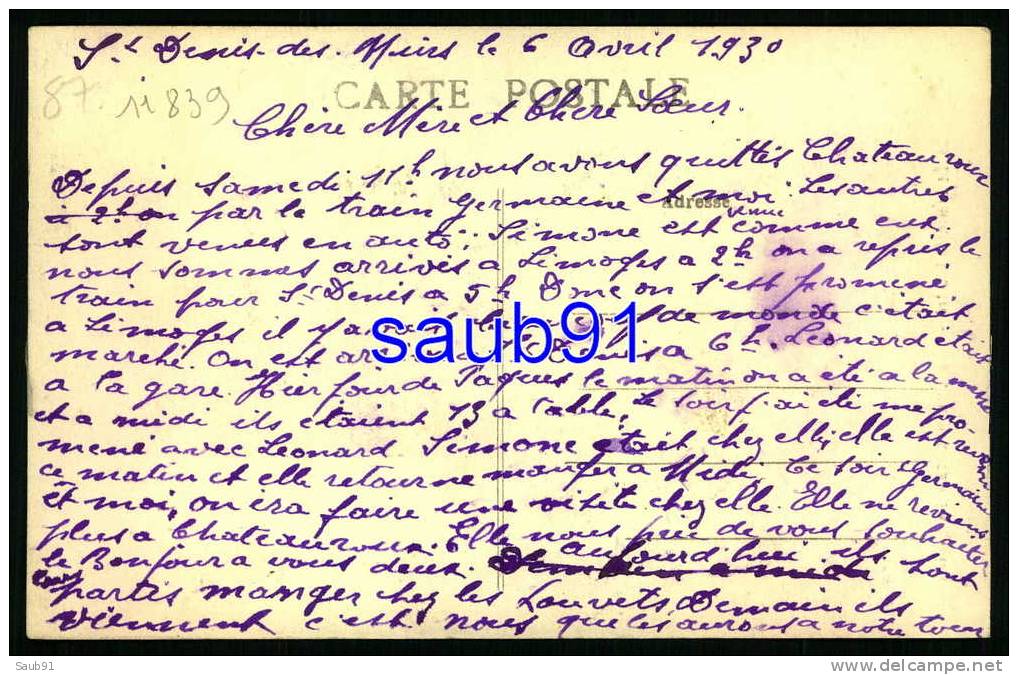 St Denis-des-Murs le 6 Avril 1930
87. 11839
CARTE POSTALE
Chère Mère et Chère Sœur.
Depuis samedi 11h nous avons quittés Chateauroux
à 2h on par le train Germaine et moi. Les autres
Adresse
sont venues en auto; Simone est venue comme eux.
nous sommes arrivés a Limoges a 2h on a repris le
train pour St Denis a 5h Donc on s'est promené
a Limoges il y avait de monde c'était
marché. On est a 6h. Léonard était
a la gare. Hier jour de Paques le matin on a été a la messe
et a midi ils étaient 13 a table. Le soir j'ai été me pro-
mené avec Leonard Simone était chez elle, elle est revenu
ce matin et elle retourne manger a Midi. Ce soir Germaine
et moi, on ira faire une visite chez elle. Elle ne reviens
plus a Chateauroux. Elle nous prie de vous souhaiter
le Bonjour a vous deux. Demain a midi aujourd'hui ils sont
tous partis manger chez les Louvets, Demain ils
viennent c'est nous que les aurons a notre tour
saub91
Saub91
www.delcampe.net